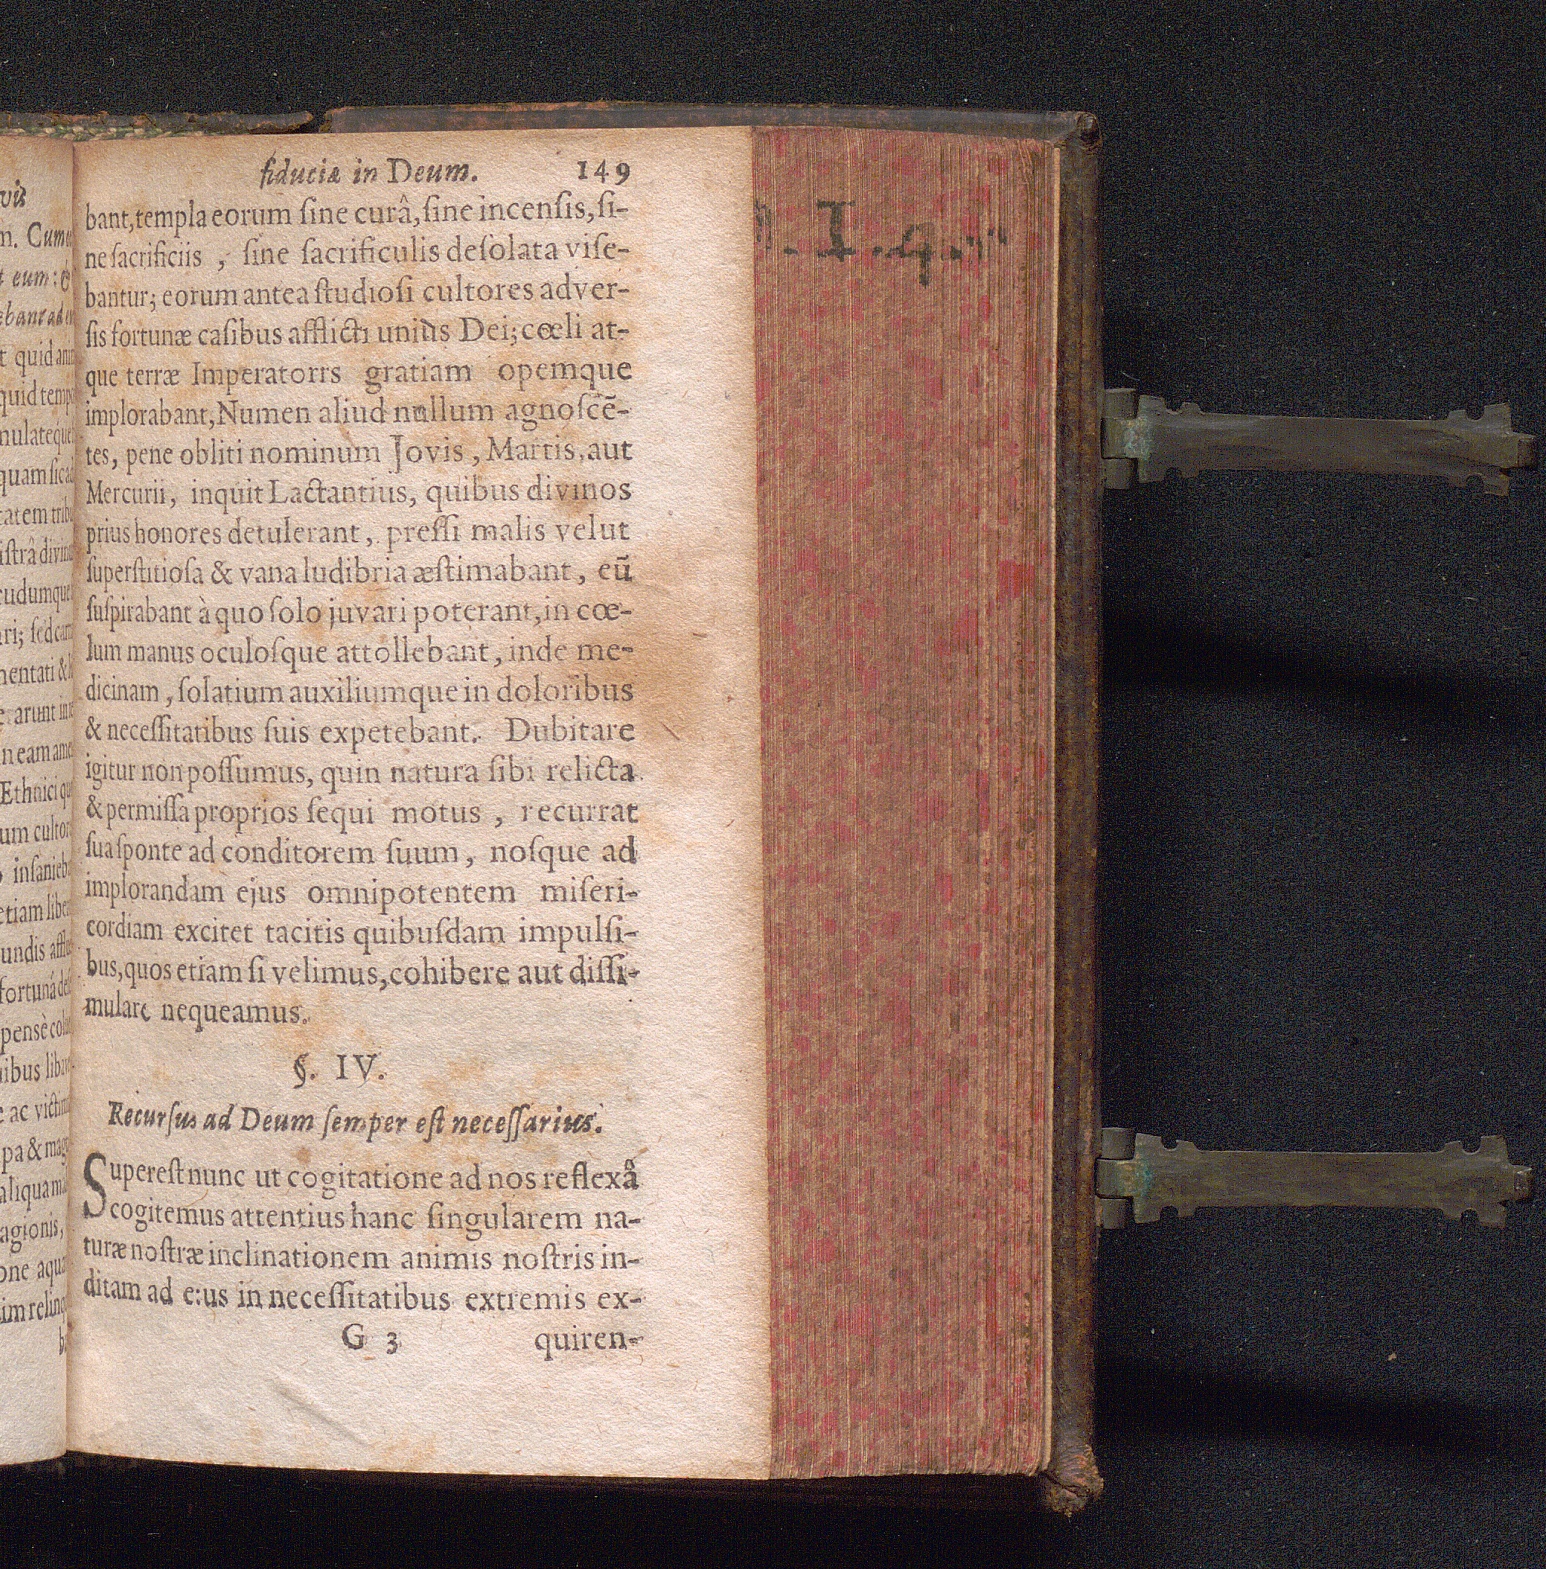 fiduciæ in Deum. 149
bant, templa eorum ſine curâ, ſine incenſis, ſi-
ne ſacrificiis, ſine ſacrificulis deſolata viſe-
bantur; eorum antea ſtudioſi cultores adver-
ſis fortunæ caſibus afflicti unius Dei; cœli at-
que terræ Imperatorrs gratiam opemque
implorabant, Numen aliud nullum agnoſcē-
tes, pene obliti nominum Jovis, Martis, aut
Mercurii, inquit Lactantius, quibus divinos
prius honores detulerant, preſſi malis velut
ſuperſtitioſa & vana ludibria æſtimabant, eū
ſuſpirabant à quo ſolo juvari poterant, in cœ-
lum manus oculoſque attollebant, inde me-
dicinam, ſolatium auxiliumque in doloribus
& neceſſitatibus ſuis expetebant. Dubitare
igitur non poſſumus, quin natura ſibi relicta
& permiſſa proprios ſequi motus, recurrat
ſua ſponte ad conditorem ſuum, noſque ad
implorandam ejus omnipotentem miſeri-
cordiam excitet tacitis quibuſdam impulſi-
bus, quos etiam ſi velimus, cohibere aut diſſi-
mulare nequeamus.
§. IV.
Recurſus ad Deum ſemper eſt neceſſarius.
Supereſt nunc ut cogitatione ad nos reflexâ
cogitemus attentius hanc ſingularem na-
turæ noſtræ inclinationem animis noſtris in-
ditam ad e:us in neceſſitatibus extremis ex-
G 3 quiren-